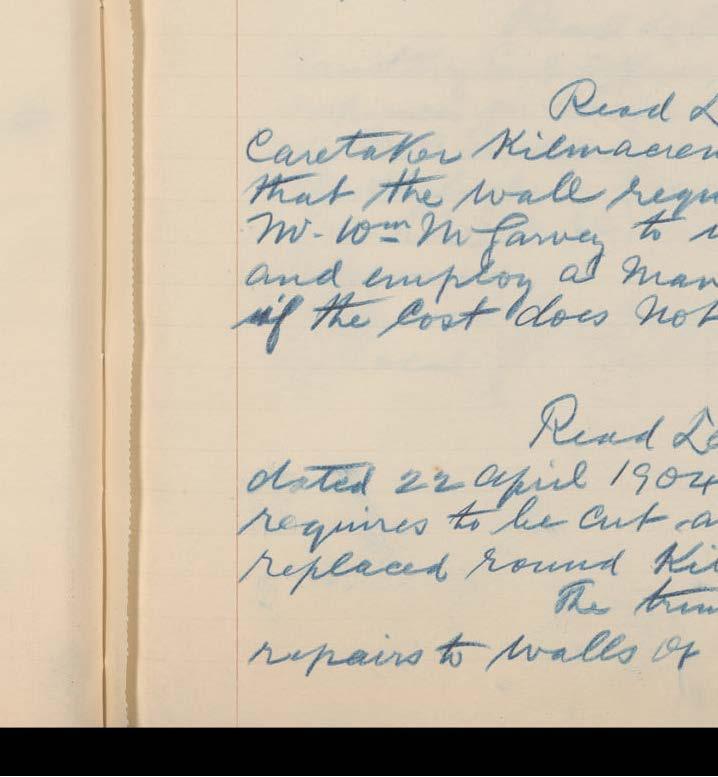 Read L
Caretaker Kilmacren
that the wall requ
Mr. Wm McGarvey to
and employ a Man
if the Cost does Not
Read Le
dated 22 April 1904
requires to be cut a
replaced round Kil
The trim
repairs to walls of